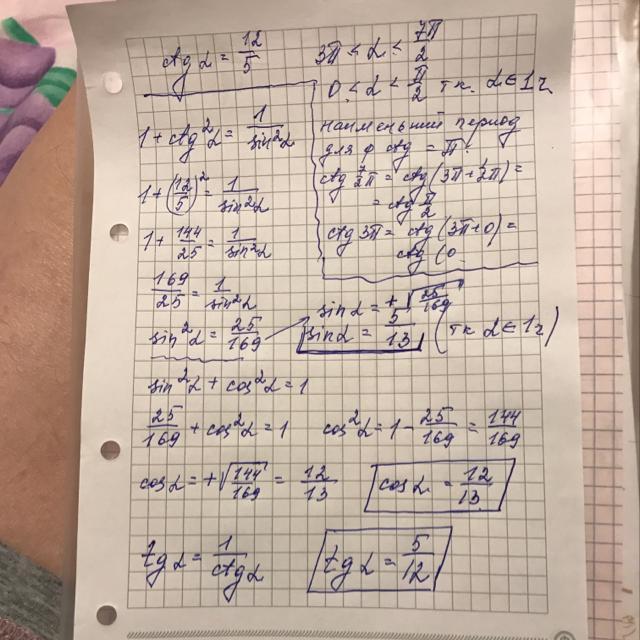 ctg α = 12/5    3π < α < 7π/2
0 < α < π/2 т.к. α ∈ 1ч
наименьший период
для ф ctg = π.
ctg 7/2π = ctg(3π + 1/2π) =
= ctg π/2
ctg 3π = ctg(3π+0) =
ctg (0
1 + ctg²α = 1/sin²α
1 + (12/5)² = 1/sin²α
1 + 144/25 = 1/sin²α
169/25 = 1/sin²α
sin²α = 25/169
sin α = +√25/169
sin α = 5/13 (т.к. α ∈ 1ч)
sin²α + cos²α = 1
25/169 + cos²α = 1    cos²α = 1 - 25/169 = 144/169
cos α = +√144/169 = 12/13    cos α = 12/13
tg α = 1/ctg α    tg α = 5/12